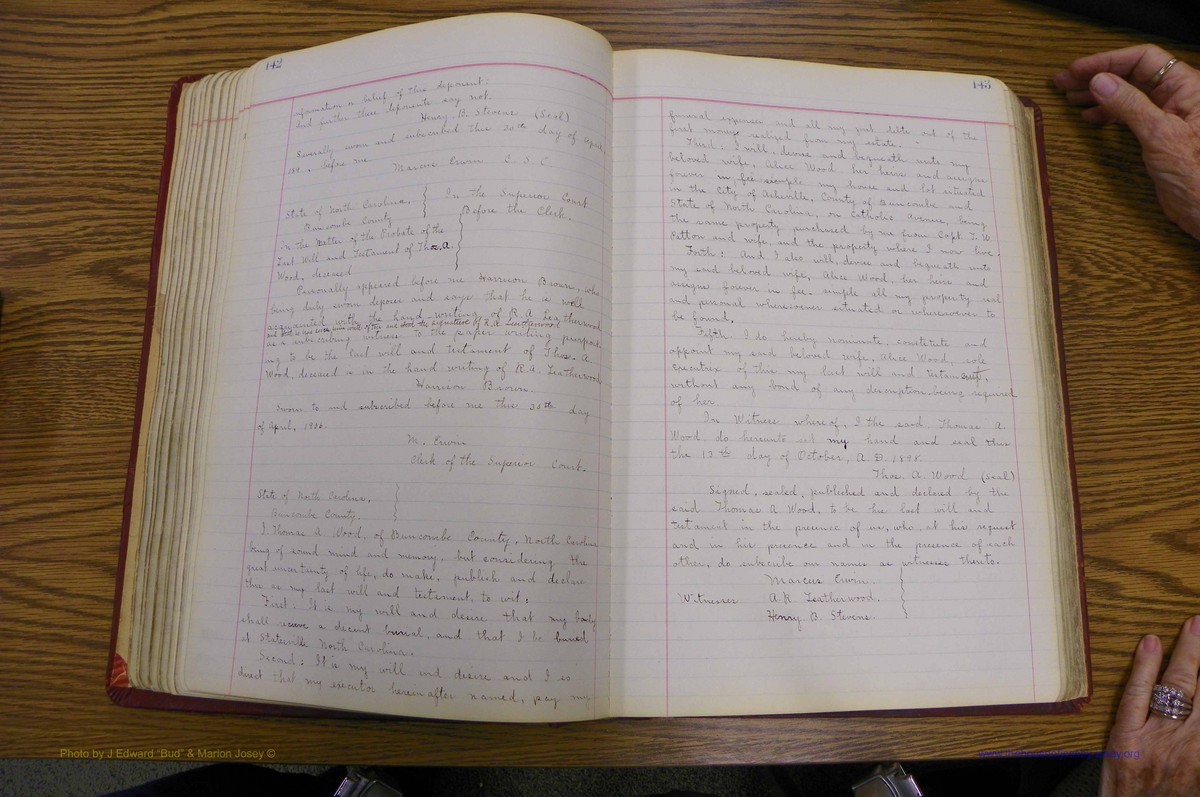 142
information or belief of this deponent:
and further these deponents say not.
Henry B. Stevens (Seal)
Severally sworn and subscribed this 30th day of April
189 . before me
Marcus Erwin C. S. C.
State of North Carolina,
Buncombe County
In the Superior Court
Before the Clerk.
In the Matter of the Probate of the
Last Will and Testament of Thos. A.
Wood, deceased
Personally appeared before me Harrison Brown, who
being duly sworn deposes and says that he is well
acquainted with the hand-writing of R.A. Leatherwood
the signature of R.A. Leatherwood
as a subscribing witness to the paper writing purport-
ing to be the last will and testament of Thos. A.
Wood, deceased is in the hand writing of R.A. Leatherwood
Harrison Brown.
Sworn to and subscribed before me this 30th day
of April, 19
M. Erwin
Clerk of the Superior Court.
State of North Carolina,
Buncombe County.
I, Thomas A. Wood, of Buncombe County, North Carolina
being of sound mind and memory, but considering the
great uncertainty of life, do make, publish and declare
this as my last will and testament, to wit:
First: It is my will and desire that my body
shall receive a decent burial, and that I be buried
at Statesville North Carolina.
Second: It is my will and desire and I so
direct that my executor hereinafter named, pay my
143
funeral expenses and all my just debts out of the
first moneys realized from my estate.
Third. I will, devise and bequeath unto my
beloved wife, Alice Wood her heirs and assigns
forever in fee-simple my house and lot situated
in the City of Asheville, County of Buncombe and
State of North Carolina, on Catholic Avenue, being
the same property purchased by me from Capt. T. W.
Patton and wife, and the property where I now live.
Forth: And I also will, devise and bequeath unto
my said beloved wife, Alice Wood, her heirs and
assigns forever in fee-simple all my property real
and personal wheresoever situated or wheresoever to
be found.
Fifth. I do hereby nominate, constitute and
appoint my said beloved wife, Alice Wood, sole
executrix of this my last will and testament,
without any bond of any description being required
of her.
In Witness whereof, I the said, Thomas A.
Wood, do hereunto set my hand and seal this
the 12th day of October, A. D. 1898.
Thos. A. Wood (seal)
Signed, sealed, published and declared by the
said Thomas A. Wood, to be his last will and
testament in the presence of us, who, at his request
and in his presence and in the presence of each
other, do subscribe our names as witnesses thereto.
Marcus Erwin.
Witnesses A. R. Leatherwood.
Henry B. Stevens.
Photo by J Edward "Bud" & Marion Josey ©